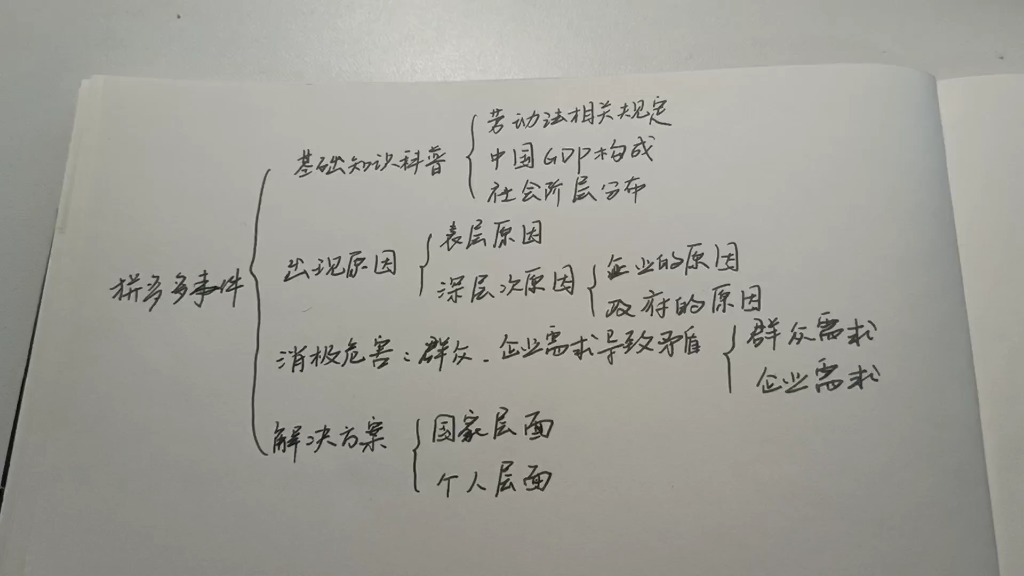 拼多多事件
基础知识科普
劳动法相关规定
中国GDP构成
社会阶层分布
出现原因
表层原因
深层次原因
企业的原因
政府的原因
消极危害：群众、企业需求导致矛盾
群众需求
企业需求
解决方案
国家层面
个人层面